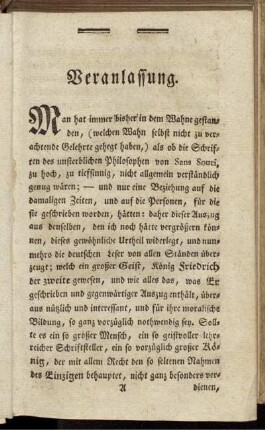 Veranlassung.
Man hat immer bisher in dem Wahne gestan-
den, (welchen Wahn selbst nicht zu ver-
achtende Gelehrte gehegt haben,) als ob die Schrif-
ten des unsterblichen Philosophen von Sans Souci,
zu hoch, zu tiefsinnig, nicht allgemein verständlich
genug wären; — und nur eine Beziehung auf die
damaligen Zeiten, und auf die Personen, für die
sie geschrieben worden, hätten: daher dieser Auszug
aus denselben, den ich noch härte vergrößern kön-
nen, dieses gewöhnliche Urtheil widerlegt, und nun-
mehro die deutschen Leser von allen Ständen über-
zeugt; welch ein großer Geist, König Friedrich
der zweite gewesen, und wie alles das, was Er
geschrieben und gegenwärtiger Auszug enthält, über-
aus nützlich und interessant, und für ihre moralische
Bildung, so ganz vorzüglich nothwendig sey. Soll-
te es ein so großer Mensch, ein so geistvoller lehr-
reicher Schriftsteller, ein so vorzüglich großer Kö-
nig, der mit allem Recht den so seltenen Nahmen
des Einzigen behauptet, nicht ganz besonders ver-
A dienen,